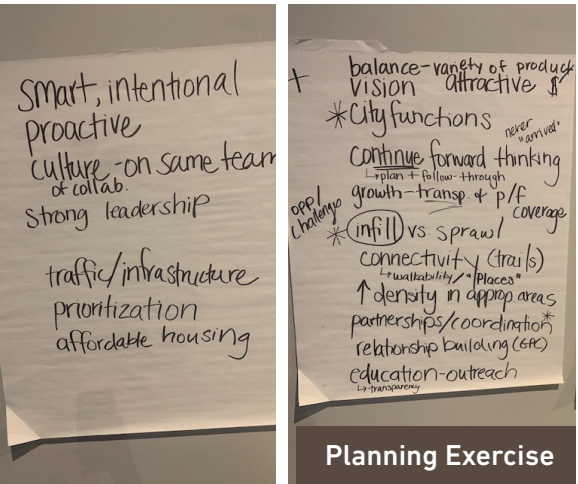 smart, intentional
proactive
culture - on same team
of collab.
strong leadership
traffic/infrastructure
prioritization
affordable housing
+
balance - variety of product
vision attractive $
*City functions
never "arrived"
continue forward thinking
↳plan + follow-through
growth - transp. & p/f
coverage
opp/
challenge
* infill vs. sprawl
connectivity (trails)
↳walkability/"Places"
↑ density in approp. areas
partnerships/coordination*
relationship building (GPC)
education - outreach
↳transparency
Planning Exercise